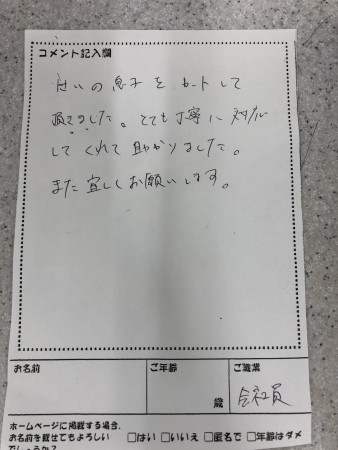 コメント記入欄
せいの息子をカットして
頂きました。とても丁寧に対応
してくれて助かりました。
また宜しくお願いします。
お名前
ご年齢
ご職業
歳
会社員
ホームページに掲載する場合、
お名前を載せてもよろしい
でしょうか?
□はい □いいえ □匿名で □年齢はダメ